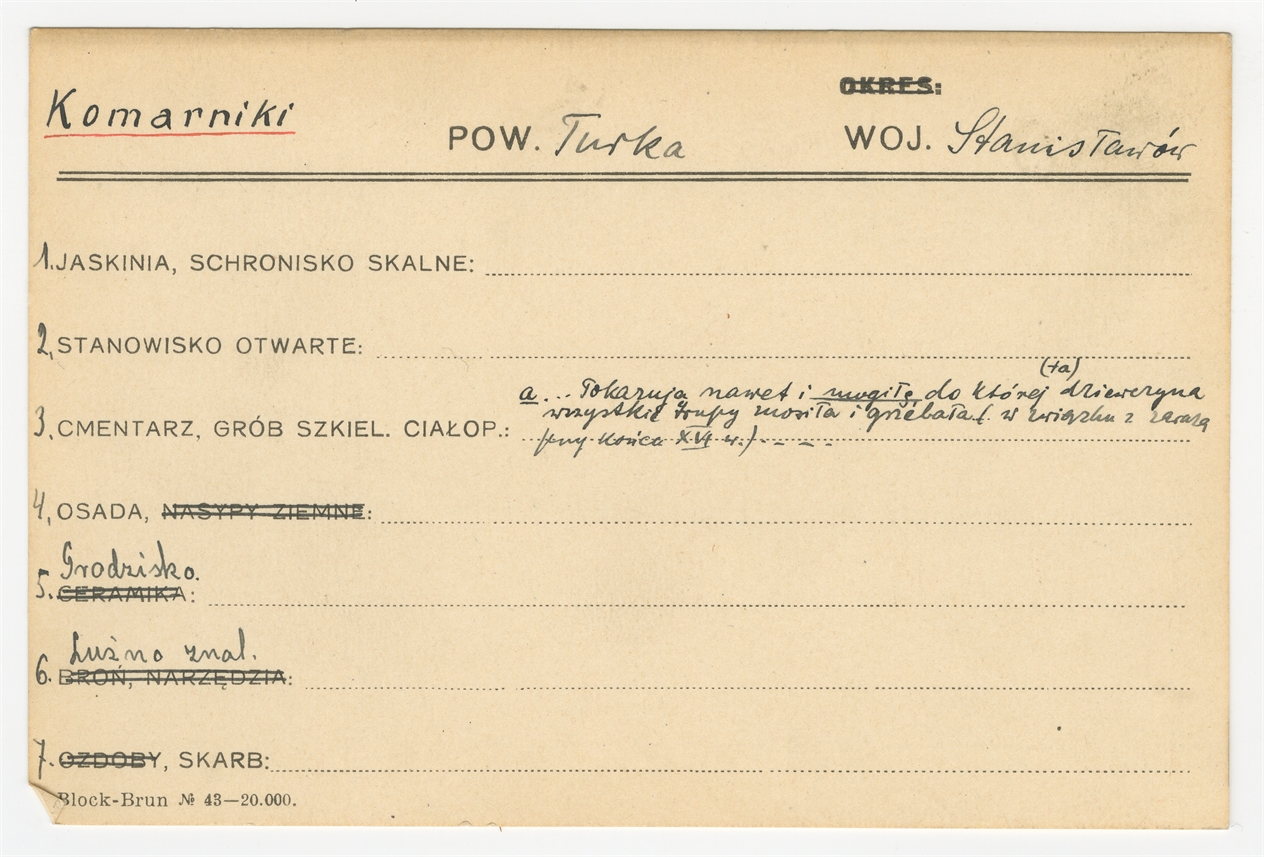 OKRES:
Komarniki
POW. Turka WOJ. Stanisławów
1. JASKINIA, SCHRONISKO SKALNE:
2. STANOWISKO OTWARTE:
(ta)
a... Pokazują nawet i mogiłę do której dziewczyna
wszystkie trupy znosiła i grzebała (w związku z zarazą
3. CMENTARZ, GRÓB SZKIEL. CIAŁOP.:
końca XVI w.) - - -
4. OSADA, NASYPY ZIEMNE:
Grodzisko.
5. CERAMIKA:
Luźno znal.
6. BROŃ, NARZĘDZIA:
7. OZDOBY, SKARB:
Block-Brun № 43—20.000.